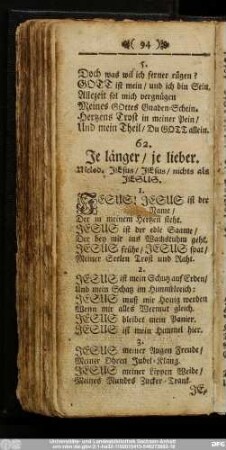 ( 94 )
5.
Doch was wil ich ferner rügen?
GOTT ist mein / und ich bin Sein.
Allezeit sol mich vergnügen
Meines GOttes Gnaden-Schein.
Hertzens Trost in meiner Pein /
Und mein Theil / Du GOTT allein.
62.
Je länger / je lieber.
Melod. JEsus / JEsus / nichts als
JESUS.
1.
JESUS! JESUS ist der
Name /
Der in meinem Hertzen steht.
JESUS ist der edle Saame /
Der bey mir ins Wachsthum geht.
JESUS frühe / JESUS spat /
Meiner Seelen Trost und Raht.
2.
JESUS ist mein Schutz auf Erden /
Und mein Schatz im Himmelreich:
JESUS muß mir Honig werden
Wenn mir alles Wermut gleich.
JESUS bleibet mein Panier.
JESUS ist mein Himmel hier.
3.
JESUS meiner Augen Freude /
Meiner Ohren Jubel-Klang.
JESUS meiner Lippen Weide /
Meines Mundes Zucker-Tranck.
JE-
Universitäts- und Landesbibliothek Sachsen-Anhalt